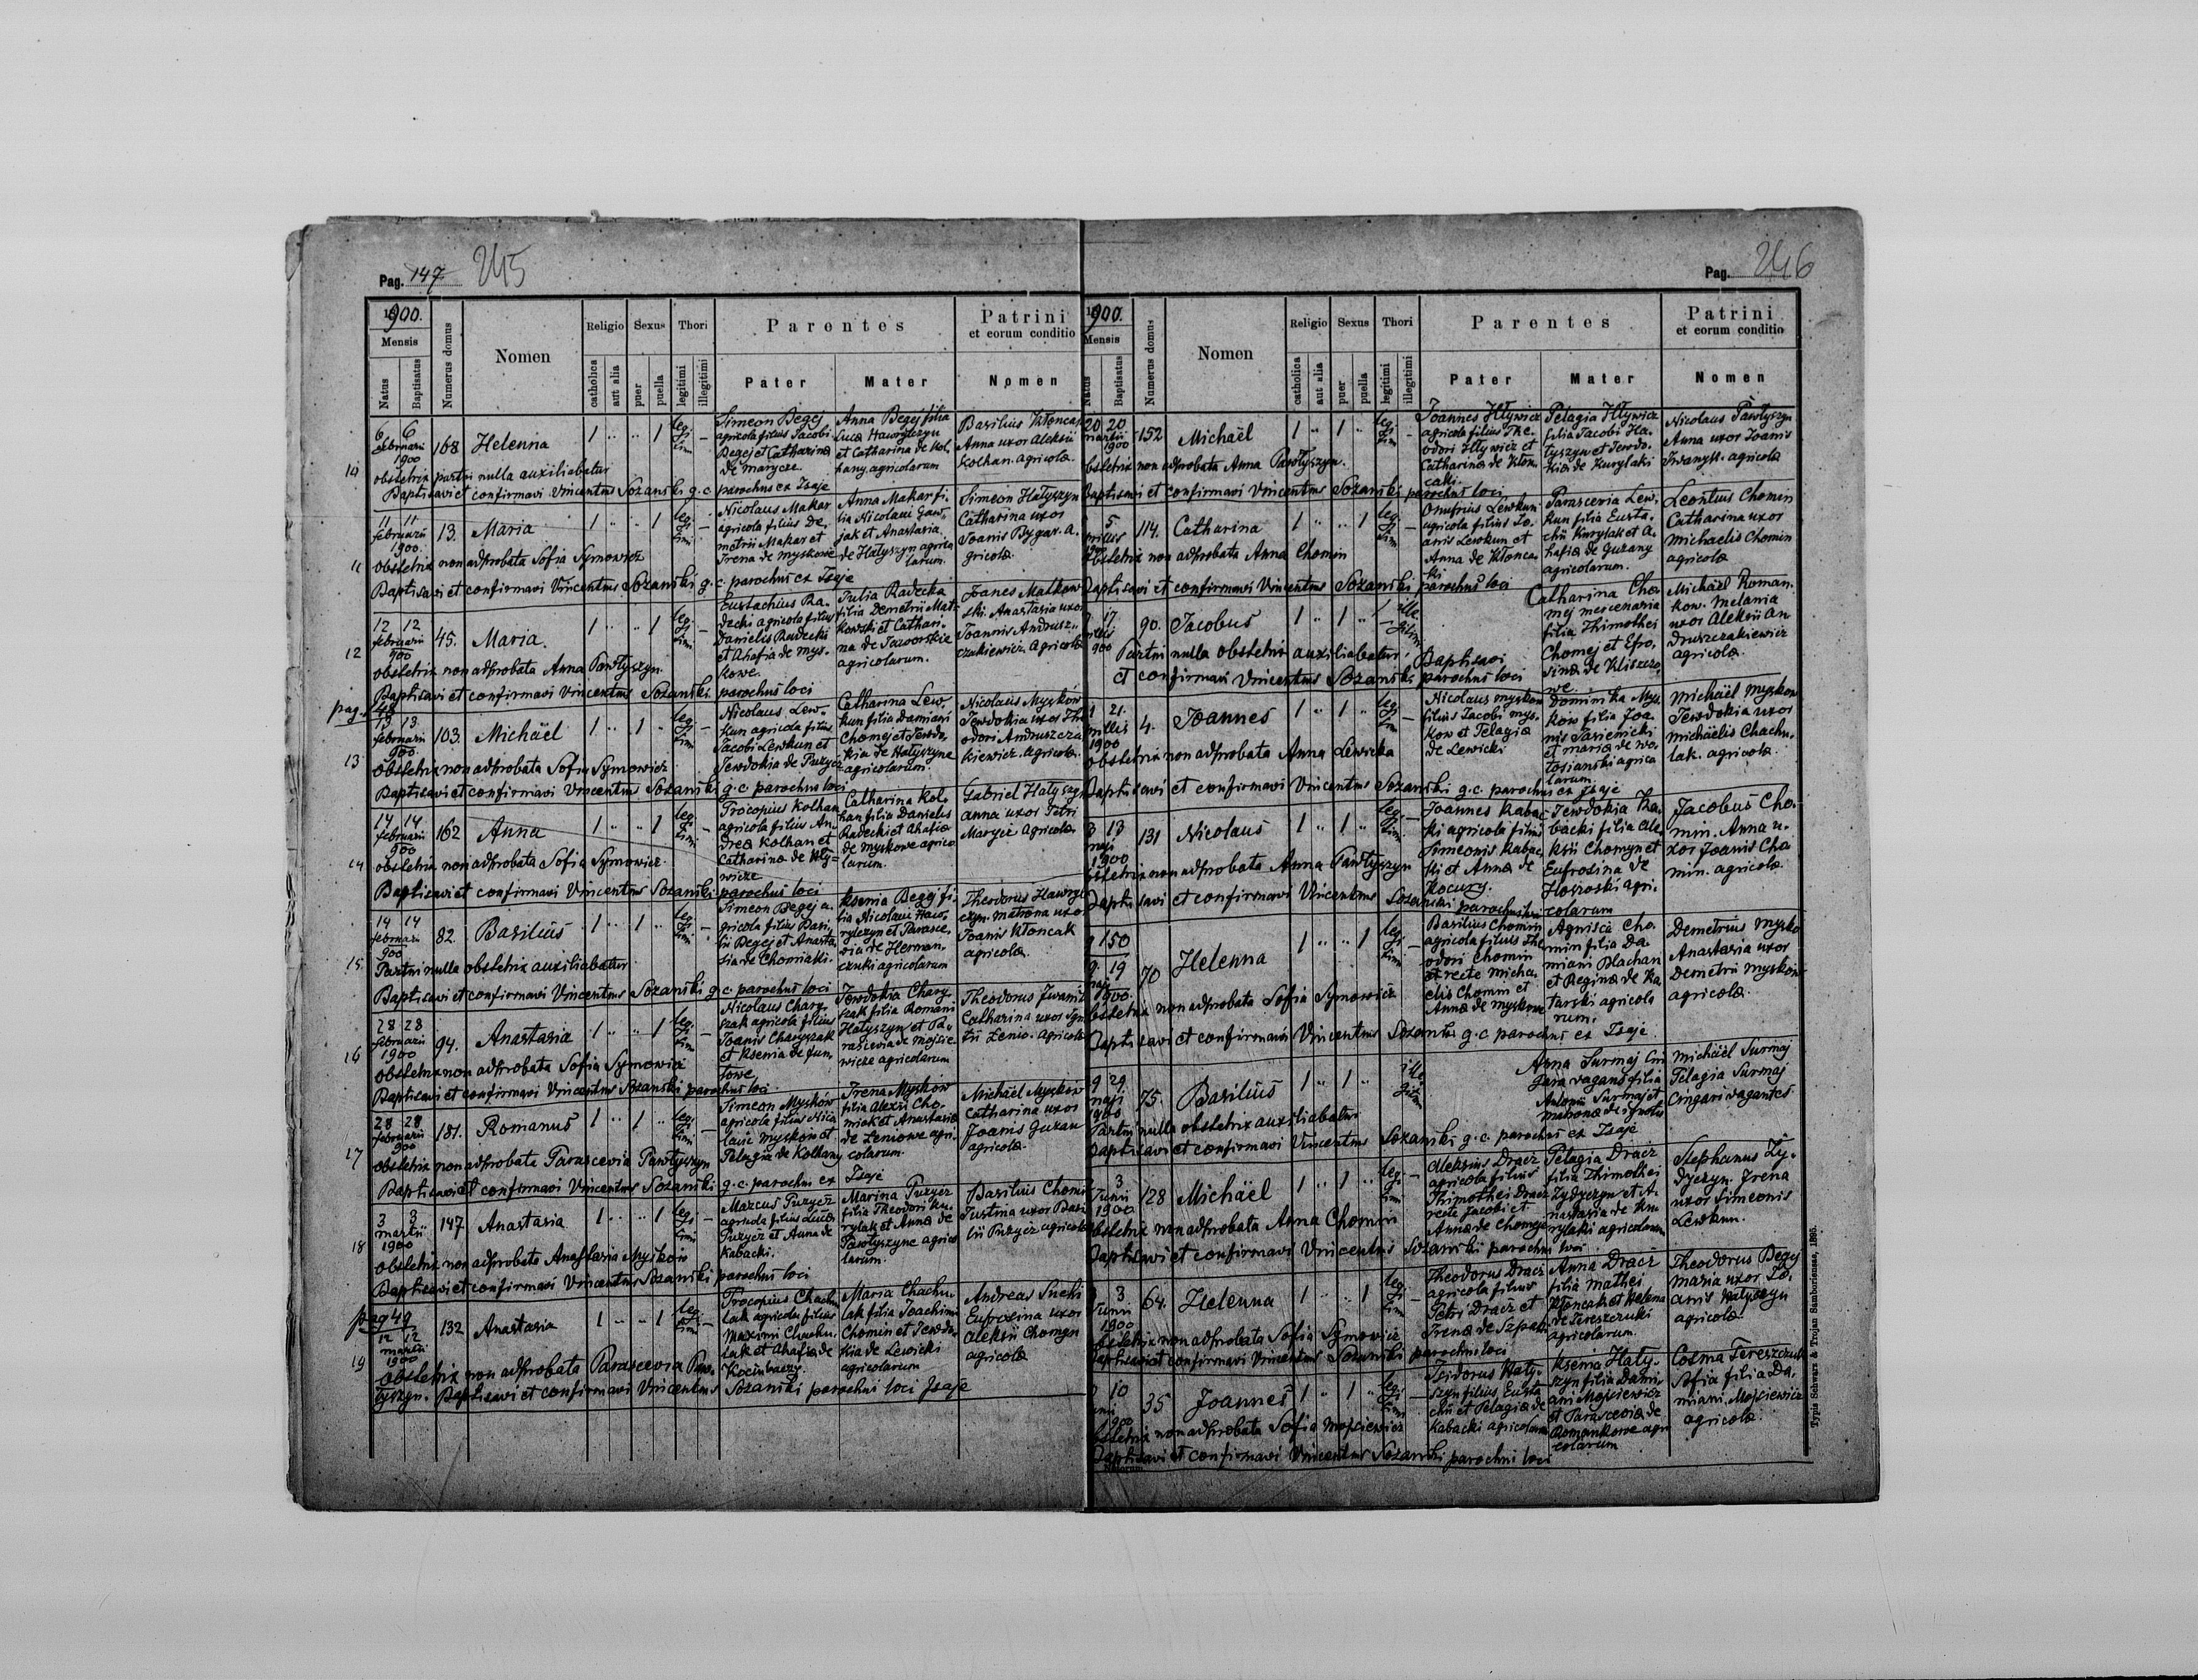 Pag. 147 245
1900.
Mensis
Natus
Baptisatus
Numerus domus
Nomen
Religio
catholica
aut alia
Sexus
puer
puella
Thori
legitimi
illegitimi
Parentes
Pater
Mater
Patrini
et eorum conditio
Nomen
10
6 6
februarii
1900
168
Helenna
1 " " 1
legi
timi
Simeon Begej
agricola filius Jacobi
Begej et Catharina
de Marycze
Anna Begej filia
Lucæ Hawrylczyn
et Catharina de Kol
hany agricolarum
Basilius Kłoncak
Anna uxor Aleksii
Kolhan. agricolæ
obstetrix partui nulla auxiliabatur
Baptisavi et confirmavi Vincentius Sozański g.c. parochus ex Isaje
11
11 11
februarii
1900
13.
Maria
1 " " 1
legi
timi
Nicolaus Makar
agricola filius De
metrii Makar et
Irena de Myskowie
Anna Makar fi
lia Nicolaui Gaw
jak et Anastasia
de Hatyszyn agrico
larum.
Simeon Hatyszyn
Catharina uxor
Joanis Bygar. A.
gricolæ
obstetrix non adprobata Sofia Symowicz
Baptisavi et confirmavi Vincentius Sozanski g.c. parochus ex Isaje
12
12 12
februarii
900
45.
Maria.
1 " " 1
legi
timi
Eustachius Ra
decki agricola filius
Danielis Radecki
et Ahafia de Mys
kowe.
Julia Radecka
filia Demetrii Mat
kowski et Cathari
na de Jaworskie
agricolarum.
Joanes Matkow
ski. Anastasia uxor
Joannis Andrusz
czakiewicz. Agricolæ
obstetrix non adprobata Anna Pawłyszyn.
Baptisavi et confirmavi Vincentius Sozanski. parochus loci
pag. 48
13
13 13.
februarii
900.
103.
Michäel
1 " 1 "
legi
timi
Nicolaus Lew
kun agricola filius
Jacobi Lewkun et
Jewdokia de Puzycz
Catharina Lew
kun filia Damiani
Chomej et Jewdo
kia de Hatyszyne
agricolarum.
Nicolaus Myskow
Jewdokia uxor The
odori Andruszcza
kiewicz. Agricolæ.
obstetrix non adprobata Sofia Symowicz
Baptisavi et confirmavi Vincentius Sozański g.c. parochus loci
14
14 14
februarii
900
162
Anna
1 " " 1
legi
timi
Procopius Kolhan
agricola filius An
dreæ Kolhan et
Catharina de Hły
wicze
Catharina Kol
han filia Danielis
Radecki et Ahafiæ
de Myskowe agrico
larum.
Gabriel Hatyszyn
Anna uxor Petri
Marycz Agricolæ.
obstetrix non adprobata Sofia Symowicz.
Baptisavi et confirmavi Vincentius Sozanski parochus loci
15.
14 14
februarii
900
82.
Basilius
1 " 1 "
legi
timi
Simeon Begej a
gricola filius Basi
lii Begej et Anasta
sia de Chomiaki.
Ksenia Begej fi
lia Nicolaui Haw
rylczyn et Parasce
via de Herman
czuki agricolarum
Theodorus Hawryl
czyn. Matrona uxor
Joanis Kłoncak
agricolæ.
Partui nulla obstetrix auxiliabatur
Baptisavi et confirmavi Vincentius Sozanski g.c. parochus loci
16
28 28
februarii
1900
94.
Anastasia
1 " " 1
legi
timi
Nicolaus Chary
szak agricola filius
Joanis Charyszak
et Ksenia de
Jewdokia Chary
szak filia Romani
Hatyszyn et Pa
rascevia de Mojsie
wicze agricolarum
Theodorus
Catharina uxor
Lenio. Agricolæ
obstetrix non adprobata Sofia Symowicz
Baptisavi et confirmavi Vincentius Sozanski parochus loci
17
28 28
februarii
900
181.
Romanus
1 " 1 "
legi
timi
Simeon Myskow
agricola filius Nico
laui Myskow et
Pelagia de Kolhany
Irena Myskow
filia Alexii Cho
miak et Anastasia
de Leniowe agri
colarum.
Michäel Myskow
Catharina uxor
Joanis Guzan
agricolæ.
obstetrix non adprobata Parascevia Pawłyszyn
Baptisavi et confirmavi Vincentius Sozanski g.c. parochus ex Isaje
18
3 3
martii
1900
147
Anastasia
1 " " 1
legi
timi
Marcus Puzycz
agricola filius Lucæ
Puzycz et Anna de
Kabacki.
Marina Puzycz
filia Theodori Ku
rylak et Anna de
Pawłyszyne agrico
larum.
Basilius Chomin
Justina uxor Basi
lii Puzycz agricolæ
obstetrix non adprobata Anastasia Myskow
Baptisavi et confirmavi Vincentius Sozanski parochus loci
pag 49
19
12 12
martii
1900
132
Anastasia
1 " " 1
legi
timi
Procopius Chachu
lak agricola filius
Maximi Chachu
lak et Ahafia de
Maria Chachu
lak filia Joachimi
Chomin et Jewdo
kia de Lewicki
agricolarum
Andreas
Eufrosina uxor
Aleksii Chomyn
agricolæ
obstetrix non adprobata Parascevia Paw
łyszyn. Baptisavi et confirmavi Vincentius Sozanski parochus loci Isaje
Pag. 246
1900.
Mensis
Natus
Baptisatus
Numerus domus
Nomen
Religio
catholica
aut alia
Sexus
puer
puella
Thori
legitimi
illegitimi
Parentes
Pater
Mater
Patrini
et eorum conditio
Nomen
20 20
martii
1900
152
Michäel
1 " 1 "
legi
timi
Joannes Hływicz
agricola filius The
odori Hływicz et
Catharina de Kłon
caki.
Pelagia Hływicz
filia Jacobi Ha
tyszyn et Jewdo
kia de Kurylaki
Nicolaus Pawłyszyn
Anna uxor Joanis
Iwanysz. agricolæ
obstetrix non adprobata Anna Pawłyszyn.
Baptisavi et confirmavi Vincentius Sozanski parochus loci
5
114.
Catharina
1 " " 1
legi
timi
Onufrius Lewkun
agricola filius Jo
anis Lewkun et
Anna de Kłonca
ki
Parascevia Lew
kun filia Eusta
chii Kurylak et A
hafia de Guzany
agricolarum.
Leontius Chomin
Catharina uxor
Michaelis Chomin
agricolæ
Obstetrix non adprobata Anna Chomin
Baptisavi et confirmavi Vincentius Sozanski parochus loci
17
900
90.
Jacobus
1 " 1 "
ille
gitim
Catharina Cho
mej mercenaria
filia Thimothei
Chomej et Efro
sina de Kliszczo
we.
Michäel Roman
kow. Melania
uxor Aleksii An
druszczakiewicz
agricolæ.
Partui nulla obstetrix auxiliabatur. Baptisavi
et confirmavi Vincentius Sozanski parochus loci
21.
1900
4.
Joannes
1 " 1 "
legi
tim
Nicolaus Myskow
filius Jacobi Mys
kow et Pelagia
de Lewicki
Dominika Mys
kow filia Joa
nis Jasienicki
et Maria de Wo
łosianski agrico
larum.
Michäel Myskow
Jewdokia uxor
Michäelis Chachu
lak. agricolæ.
obstetrix non adprobata Anna Lewicka
Baptisavi et confirmavi Vincentius Sozanski g.c. parochus ex Isaje
13
maji
1900
131
Nicolaus
1 " 1 "
legi
timi
Joannes Kabac
ki agricola filius
Simeonis Kabac
ki et Anna de
Kocury.
Jewdokia Ka
backi filia Ale
ksii Chomyn et
Eufrosina de
agri
colarum
Jacobus Cho
min. Anna u
xor Joanis Cho
min. agricolæ
obstetrix non adprobata Anna Pawłyszyn
Baptisavi et confirmavi Vincentius Sozanski parochus loci
150
19
maji
1900.
70
Helenna
1 " " 1
legi
timi
Basilius Chomin
agricola filius The
odori Chomin
et recte Micha
elis Chomin et
Anna de Myskowe
Agnisia Cho
min filia Da
miani Blachan
et Regina de Ka
tarski agricola
rum.
Demetrius Mysko
Anastasia uxor
Demetrii Myskow
agricolæ.
obstetrix non adprobata Sofia Symowicz
Baptisavi et confirmavi Vincentius Sozanski g.c. parochus ex Isaje.
9 29
maji
1900
75.
Basilius
1 " 1 "
ille
gitim
Anna Surmaj Cin
gara vagans filia
Antonii Surmaj et
Matrona de ignotis
Michäel Surmaj
Pelagia Surmaj
Cingari vagantes.
Partui nulla obstetrix auxiliabatur
Baptisavi et confirmavi Vincentius Sozanski g.c. parochus ex Isaje
3
Junii
1900
128
Michäel
1 " 1 "
legi
timi
Aleksius Dracz
agricola filius
Thimothei Dracz
recte Jacobi et
Anna de Chomeje
Pelagia Dracz
filia Thimothei
Zydyczyn et A
nastasia de Ku
rylaki agricolarum
Stephanus Zy
dyczyn. Irena
uxor Simeonis
Lewkun.
obstetrix non adprobata Anna Chomin
Baptisavi et confirmavi Vincentius Sozanski parochus loci
3
Junii
1900
64.
Helenna
1 " " 1
legi
timi
Theodorus Dracz
agricola filius
Petri Dracz et
Irena de Szpak
Anna Dracz
filia Mathei
Kłoncak et Helena
de Tereszczuki
agricolarum.
Theodorus Begej
Maria uxor Jo
anis Hatyszyn
agricolæ
obstetrix non adprobata Sofia Symowicz
Baptisavi et confirmavi Vincentius Sozanski parochus loci
10
1900
35
Joannes
1 " 1 "
legi
timi
Isidorus Haty
szyn filius Eusta
chii et Pelagia de
Kabacki agricolarum
Ksenia Haty
szyn filia Dami
ani Mojsiewicz
et Parascevia de
Romankowe agri
colarum
Cosma Tereszczuk
Sofia filia Da
miani Mojsiewicz
agricolæ.
obstetrix non adprobata Sofia Mojsiewicz
Baptisavi et confirmavi Vincentius Sozanski parochus loci
Typis Schwarz & Trojan Samboriensae, 1896.